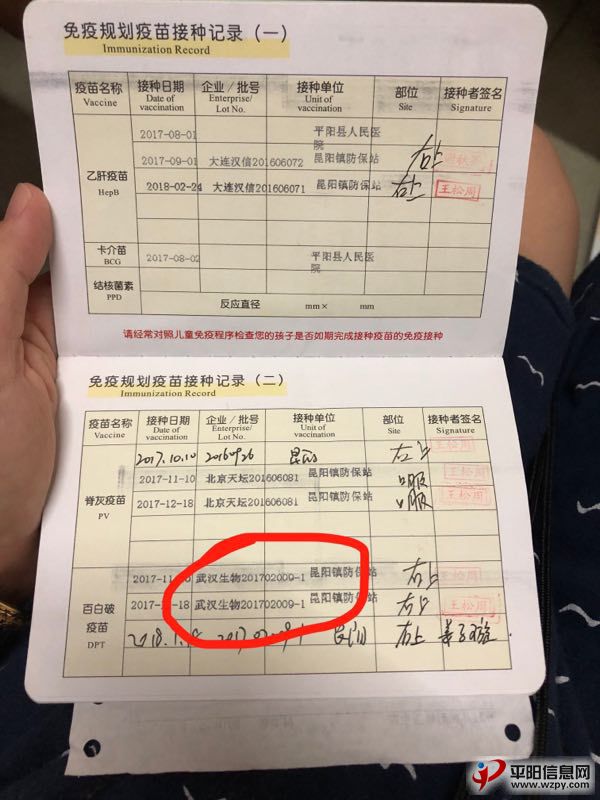 免疫规划疫苗接种记录（一）
Immunization Record
疫苗名称 接种日期 企业／批号 接种单位 部位 接种者签名
Vaccine Date of vaccination Enterprise/ Lot No. Unit of vaccination Site Signature
2017-08-01 平阳县人民医院
2017-09-01 大连汉信201606072 昆阳镇防保站 右上
乙肝疫苗 HepB 2018-02-24 大连汉信201606071 昆阳镇防保站 右上 王松周
卡介苗 BCG 2017-08-02 平阳县人民医院
结核菌素 PPD 反应直径 mm× mm
请经常对照儿童免疫程序检查您的孩子是否如期完成接种疫苗的免疫接种
免疫规划疫苗接种记录（二）
Immunization Record
疫苗名称 接种日期 企业／批号 接种单位 部位 接种者签名
Vaccine Date of vaccination Enterprise/ Lot No. Unit of vaccination Site Signature
2017.10.10 昆阳 右上 王松周
2017-11-10 北京天坛201606081 昆阳镇防保站 口服
脊灰疫苗 PV 2017-12-18 北京天坛201606081 昆阳镇防保站 口服 王松周
武汉生物201702009-1 昆阳镇防保站 右上
百白破疫苗 DPT 武汉生物201702009-1 昆阳镇防保站 王松周
昆阳 右上
平阳信息网
www.wzpy.com